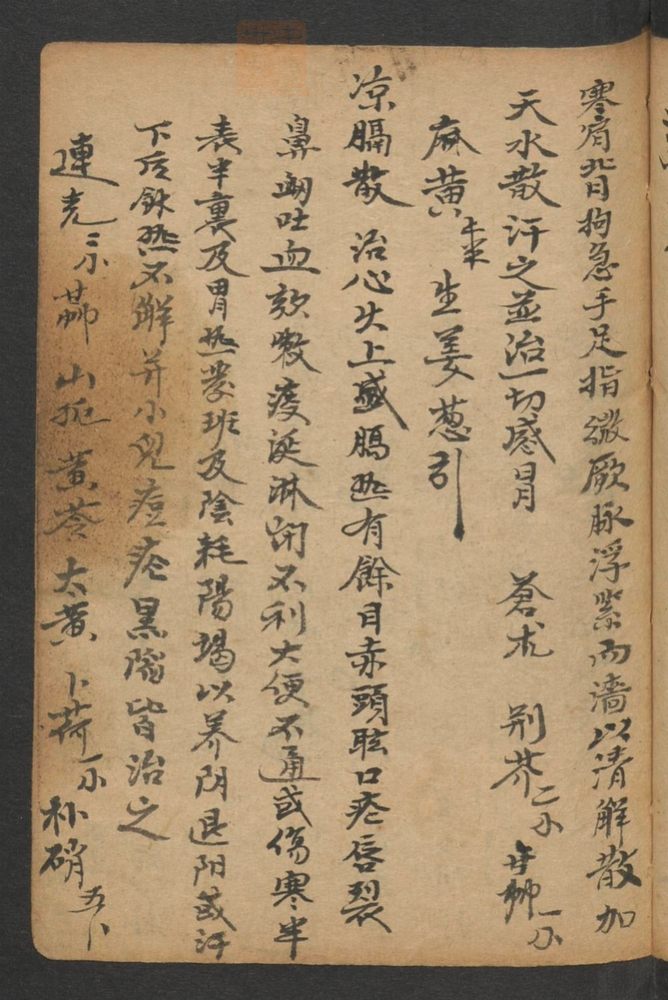 寒肩背拘急手足指微厥脉浮紧而濇以清解散加
天水散汗之並治一切感冒 蒼朮 别芥二小 一小
麻黄 生姜葱引
凉膈散 治心火上盛膓热有餘目赤頭眩口疮唇裂
鼻衄吐血欬嗽痰涎淋闭不利大便不通或傷寒半
表半裏及胃热發班及陰耗陽竭以养阴退阳或汗
下后餘热不解并小兒痘疮黑陷皆治之
連壳三小 山枙 黄芩 大黄 卜荷一小 朴硝五卜